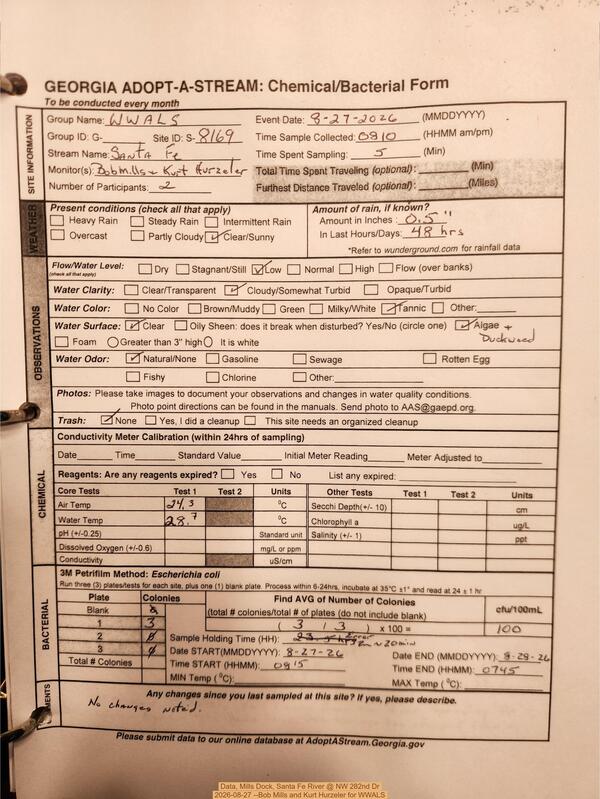 GEORGIA ADOPT-A-STREAM: Chemical/Bacterial Form
To be conducted every month
SITE INFORMATION
Group Name: WWALS Event Date: 8-27-2026 (MMDDYYYY)
Group ID: G- Site ID: S-8169 Time Sample Collected: 0810 (HHMM am/pm)
Stream Name: Santa Fe Time Spent Sampling: 5 (Min)
Monitor(s): Bob Mills + Kurt Hurzeler Total Time Spent Traveling (optional): (Min)
Number of Participants: 2 Furthest Distance Traveled (optional): (Miles)
WEATHER
Present conditions (check all that apply) Amount of rain, if known?
Heavy Rain Steady Rain Intermittent Rain Amount in Inches: 0.5"
Overcast Partly Cloudy Clear/Sunny In Last Hours/Days: 48 hrs
*Refer to wunderground.com for rainfall data
OBSERVATIONS
Flow/Water Level: Dry Stagnant/Still Low Normal High Flow (over banks)
(check all that apply)
Water Clarity: Clear/Transparent Cloudy/Somewhat Turbid Opaque/Turbid
Water Color: No Color Brown/Muddy Green Milky/White Tannic Other:
Water Surface: Clear Oily Sheen: does it break when disturbed? Yes/No (circle one) Algae +
Duckweed
Foam Greater than 3" high It is white
Water Odor: Natural/None Gasoline Sewage Rotten Egg
Fishy Chlorine Other:
Photos: Please take images to document your observations and changes in water quality conditions.
Photo point directions can be found in the manuals. Send photo to AAS@gaepd.org.
Trash: None Yes, I did a cleanup This site needs an organized cleanup
CHEMICAL
Conductivity Meter Calibration (within 24hrs of sampling)
Date Time Standard Value Initial Meter Reading Meter Adjusted to
Reagents: Are any reagents expired? Yes No List any expired:
Core Tests Test 1 Test 2 Units Other Tests Test 1 Test 2 Units
Air Temp 24.3 °C Secchi Depth(+/- 10) cm
Water Temp 28.7 °C Chlorophyll a ug/L
pH (+/-0.25) Standard unit Salinity (+/- 1) ppt
Dissolved Oxygen (+/-0.6) mg/L or ppm
Conductivity uS/cm
BACTERIAL
3M Petrifilm Method: Escherichia coli
Run three (3) plates/tests for each site, plus one (1) blank plate. Process within 6-24hrs, incubate at 35°C ±1° and read at 24 ± 1 hr
Plate Colonies Find AVG of Number of Colonies cfu/100mL
Blank 0 (total # colonies/total # of plates (do not include blank)
1 3 ( 3 / 3 ) x 100 = 100
2 0 Sample Holding Time (HH): ~ 20 min
3 0 Date START(MMDDYYYY): 8-27-26 Date END (MMDDYYYY): 8-28-26
Total # Colonies Time START (HHMM): 0815 Time END (HHMM): 0745
MIN Temp (°C): MAX Temp (°C):
MENTS
Any changes since you last sampled at this site? If yes, please describe.
No changes noted.
Please submit data to our online database at AdoptAStream.Georgia.gov
Data, Mills Dock, Santa Fe River @ NW 282nd Dr
2026-08-27 --Bob Mills and Kurt Hurzeler for WWALS